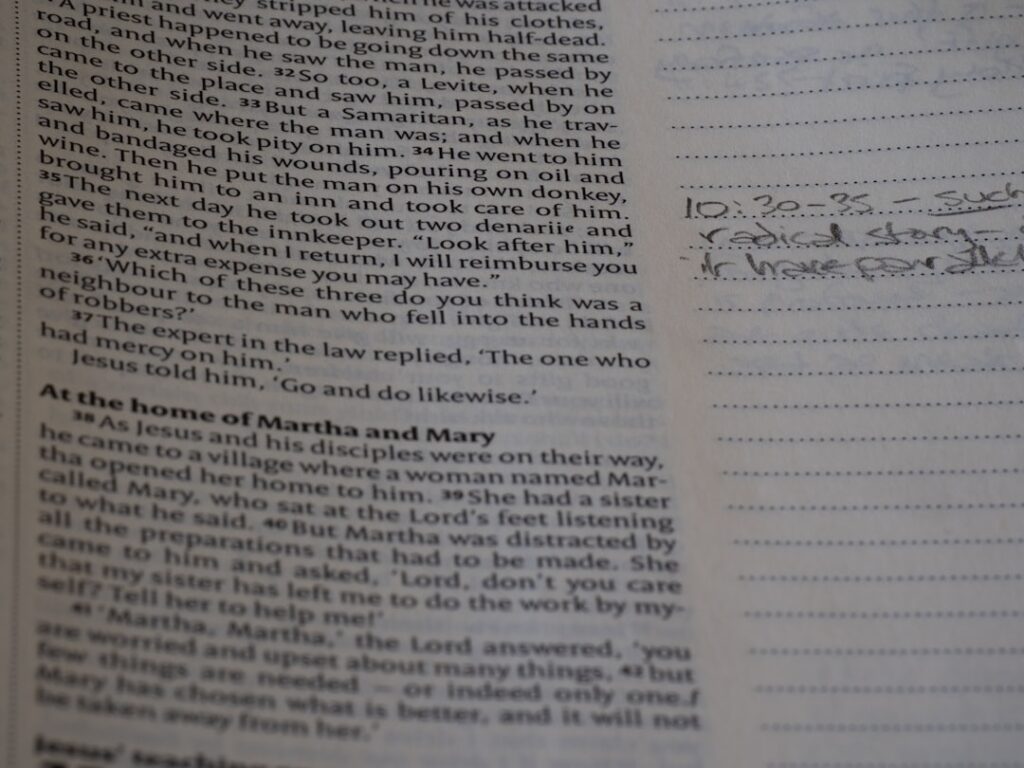 they stripped him of his clothes,
and went away, leaving him half-dead.
A priest happened to be going down the same
road, and when he saw the man, he passed by
on the other side. 32 So too, a Levite, when he
came to the place and saw him, passed by on
the other side. 33 But a Samaritan, as he trav-
elled, came where the man was; and when he
saw him, he took pity on him. 34 He went to him
and bandaged his wounds, pouring on oil and
wine. Then he put the man on his own donkey,
brought him to an inn and took care of him.
35 The next day he took out two denarii e and
gave them to the innkeeper. “Look after him,”
he said, “and when I return, I will reimburse you
for any extra expense you may have.”
36 ‘Which of these three do you think was a
neighbour to the man who fell into the hands
of robbers?’
37 The expert in the law replied, ‘The one who
had mercy on him.’
Jesus told him, ‘Go and do likewise.’
At the home of Martha and Mary
38 As Jesus and his disciples were on their way,
he came to a village where a woman named Mar-
tha opened her home to him. 39 She had a sister
called Mary, who sat at the Lord’s feet listening
to what he said. 40 But Martha was distracted by
all the preparations that had to be made. She
came to him and asked, ‘Lord, don’t you care
that my sister has left me to do the work by my-
self? Tell her to help me!’
41 ‘Martha, Martha,’ the Lord answered, ‘you
are worried and upset about many things, 42 but
few things are needed – or indeed only one. f
Mary has chosen what is better, and it will not
be taken away from her.’
Jesus’ teaching
10:30-35 – such
radical story –